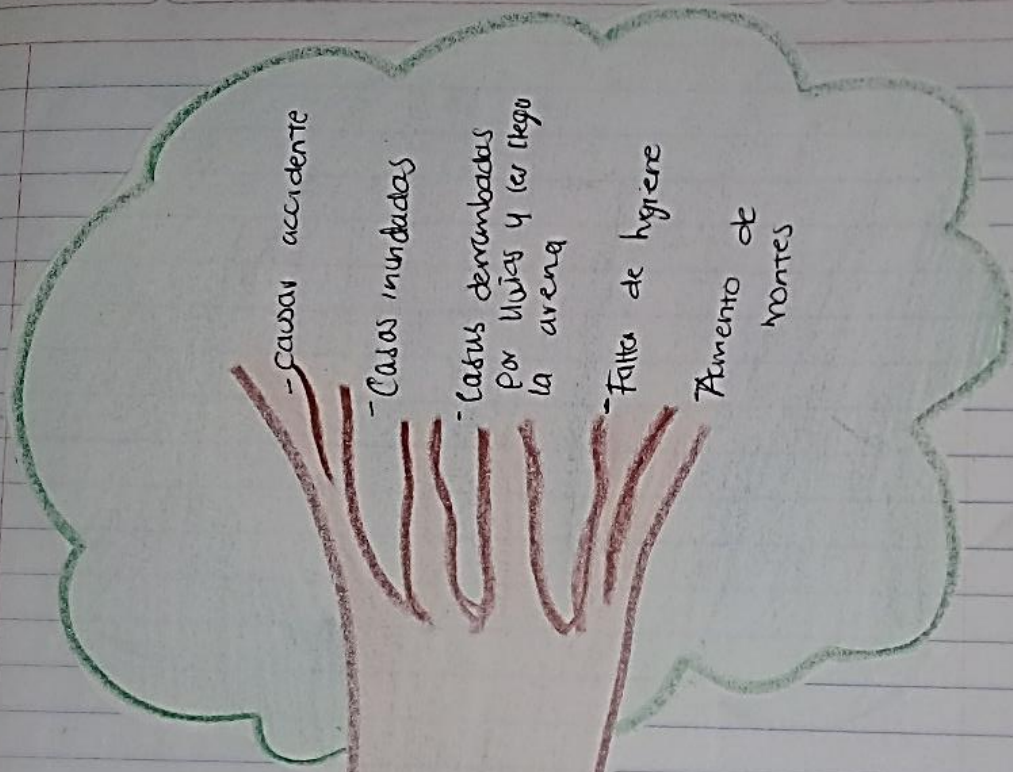 - Causar accidente
- Casas inundadas
- Casas derrumbadas
por lluvias y les llega
la arena
- Falta de higiene
- Aumento de
montes